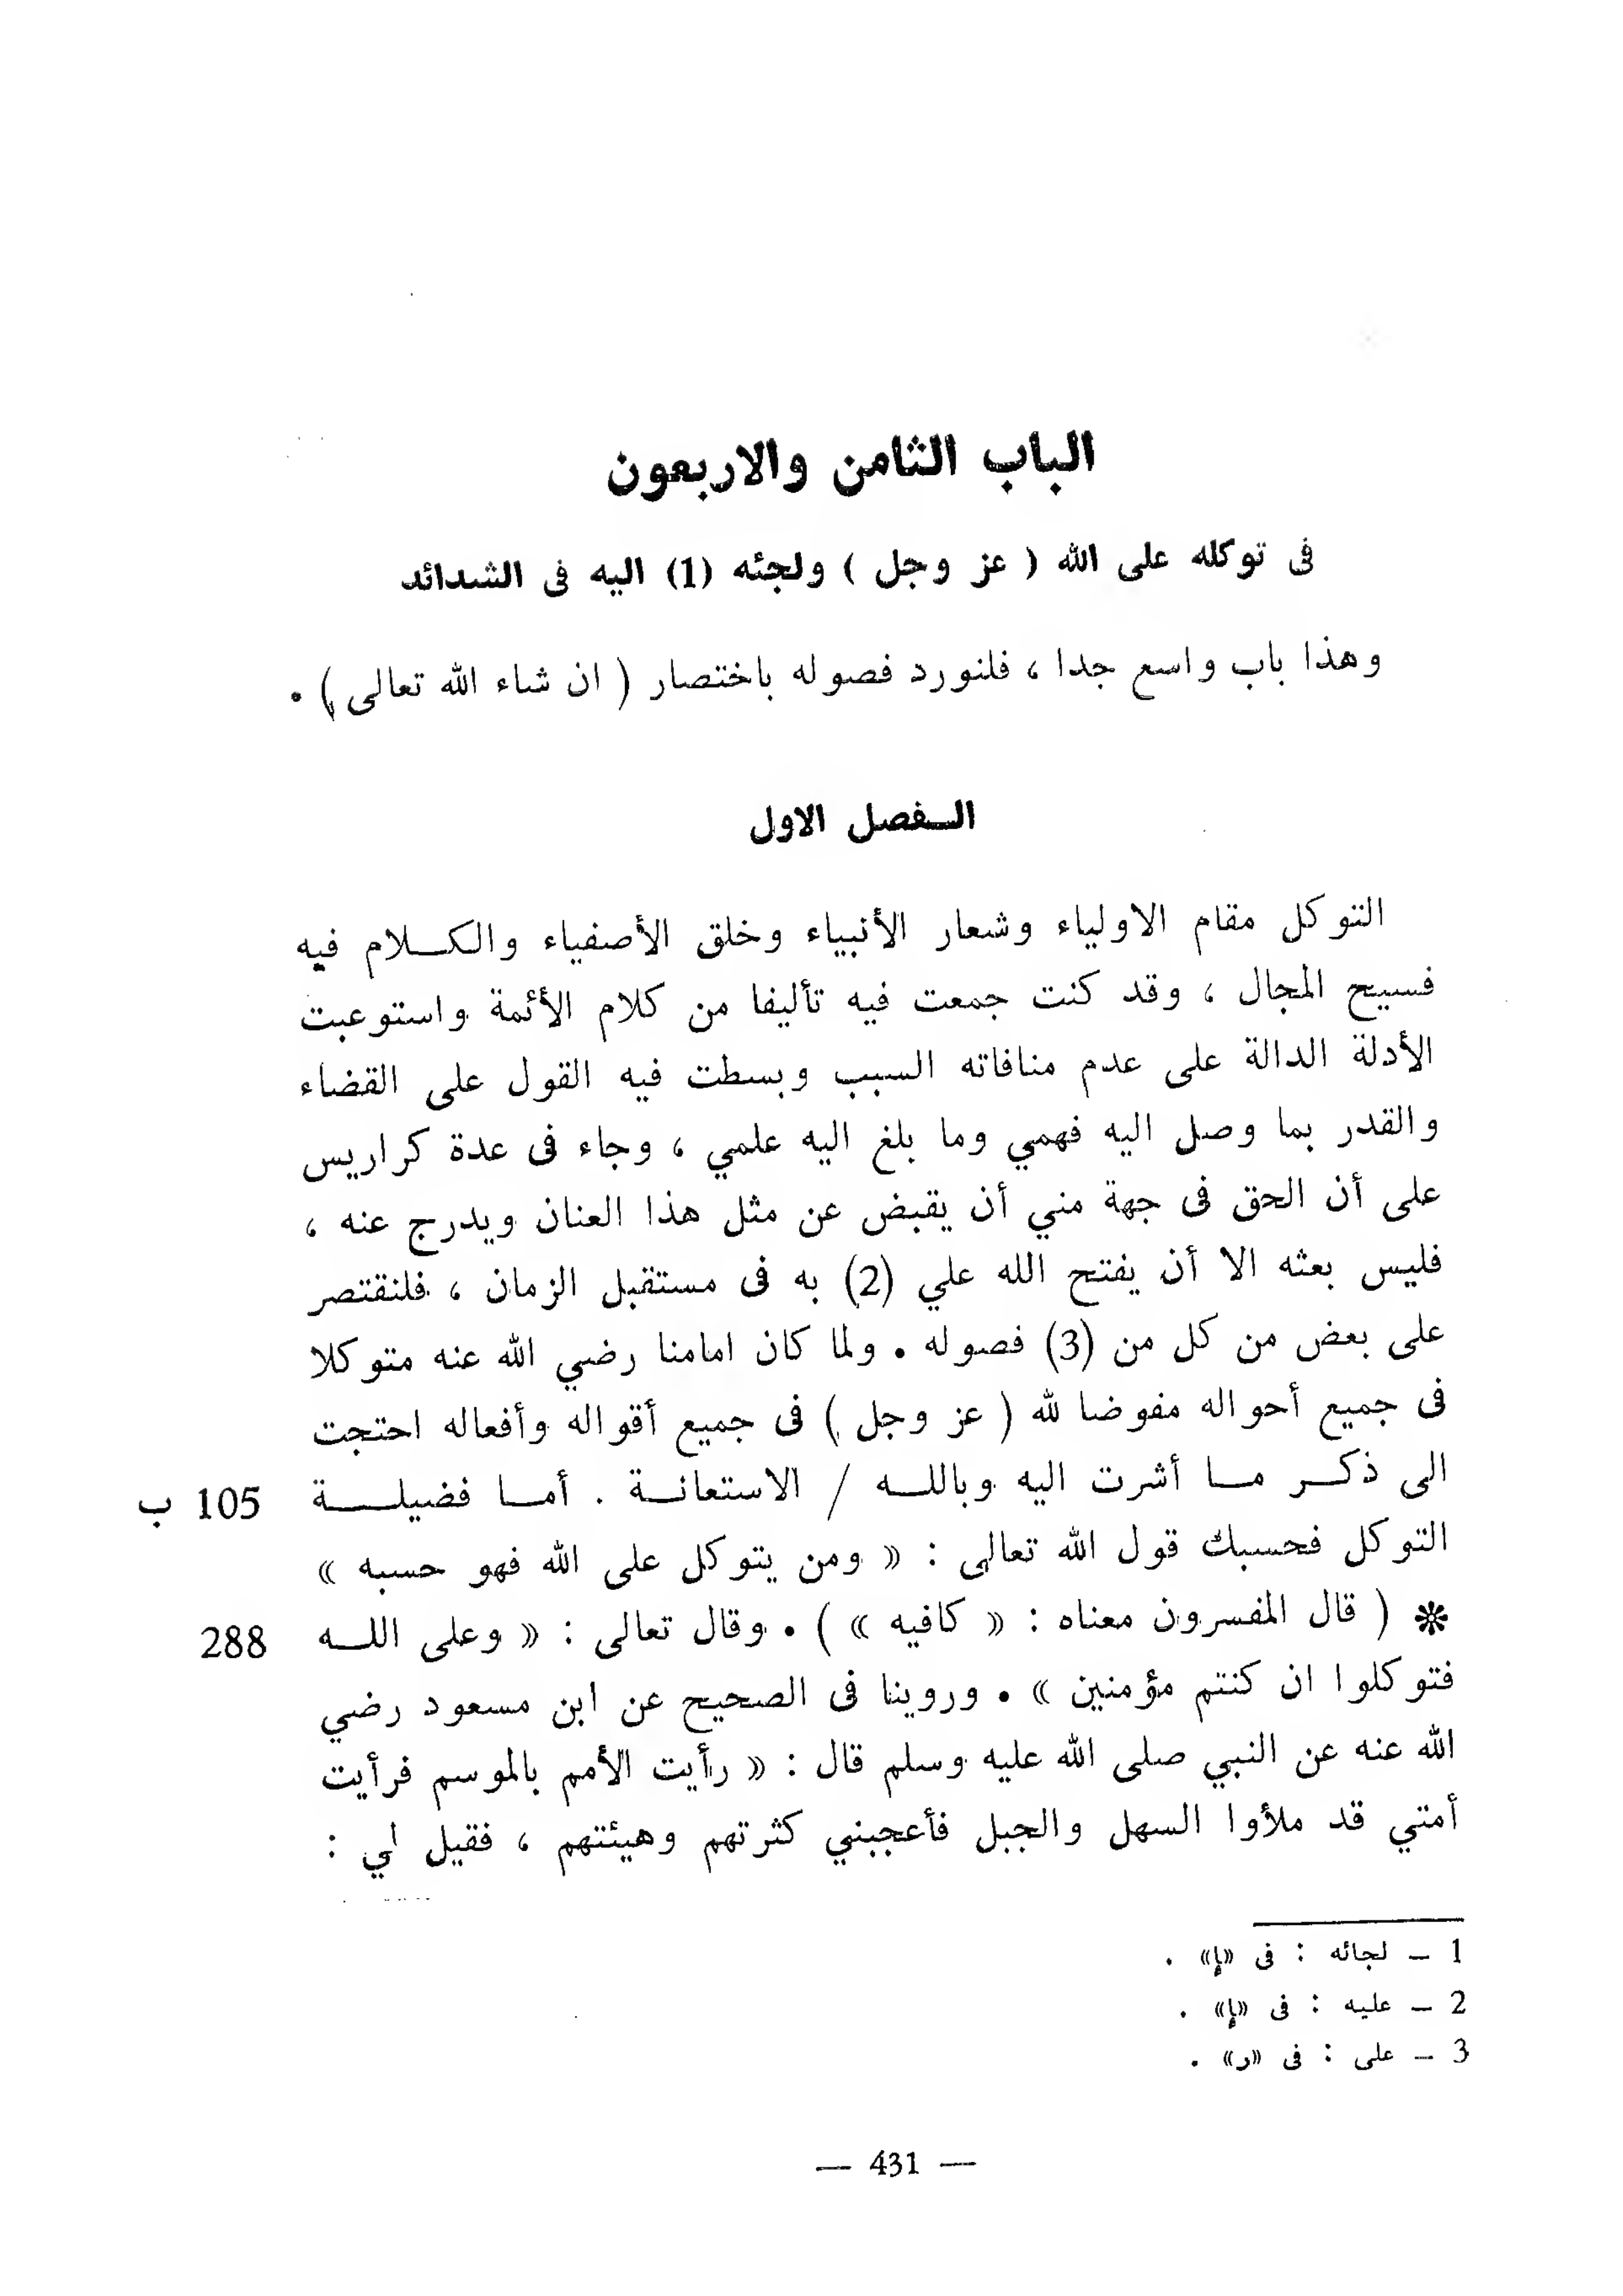 الباب الثامن والاربعون
فى توكله على الله ( عز وجل ) ولجئه (1) اليه فى الشدائد
وهذا باب واسع جدا ، فلنورد فصوله باختصار ( ان شاء الله تعالى ) .
الـفصل الاول
التوكل مقام الاولياء وشعار الأنبياء وخلق الأصفياء والكـــلام فيه
فسيح المجال ، وقد كنت جمعت فيه تأليفا من كلام الأئمة واستوعبت
الأدلة الدالة على عدم منافاته السبب وبسطت فيه القول على القضاء
والقدر بما وصل اليه فهمي وما بلغ اليه علمي ، وجاء فى عدة كراريس
على أن الحق فى جهة مني أن يقبض عن مثل هذا العنان ويدرج عنه ،
فليس بعثه الا أن يفتح الله علي (2) به فى مستقبل الزمان ، فلنقتصر
على بعض من كل من (3) فصوله . ولما كان امامنا رضي الله عنه متوكلا
فى جميع أحواله مفوضا لله ( عز وجل ) فى جميع أقواله وأفعاله احتجت
الى ذكـــر مـــا أشرت اليه وباللـــه / الاستعانـــة . أمـــا فضيلـــــة 105 ب
التوكل فحسبك قول الله تعالى : « ومن يتوكل على الله فهو حسبه »
* ( قال المفسرون معناه : « كافيه » ) . وقال تعالى : « وعلى اللـــه 288
فتوكلوا ان كنتم مؤمنين » . وروينا فى الصحيح عن ابن مسعود رضي
الله عنه عن النبي صلى الله عليه وسلم قال : « رأيت الأمم بالموسم فرأيت
أمتي قد ملأوا السهل والجبل فأعجبني كثرتهم وهيئتهم ، فقيل لي :
1 ــ لجائه : فى «إ» .
2 ــ عليه : فى «إ» .
3 ــ على : فى «ر» .
— 431 —